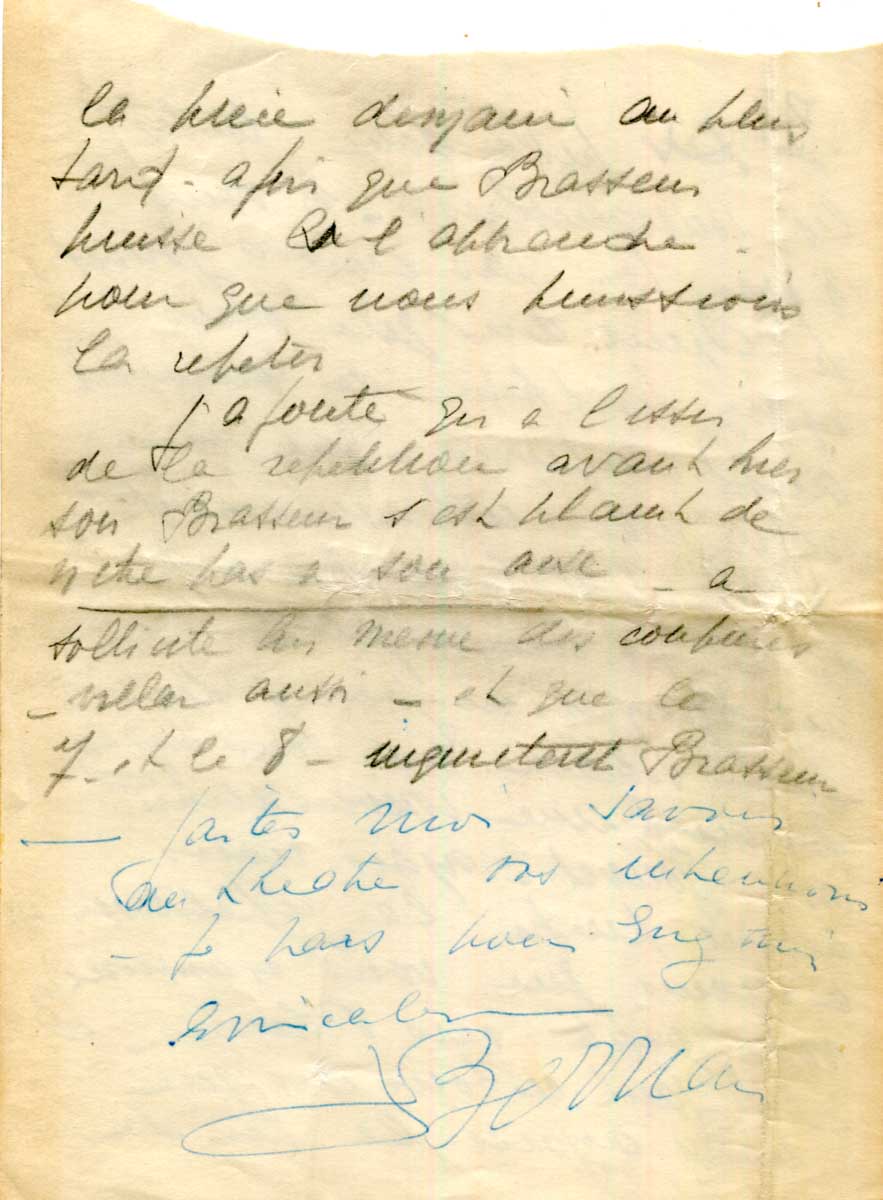 la piece demain au plus
tard - afin que Brasseur
puisse l'apprendre -
pour que nous puissions
la repeter
j'ajoute qu'a l'issu
de la repetition avant hier
soir Brasseur s'est plaint de
n'etre pas a son aise - a
sollicite lui meme des coupures
- vilar aussi - et que le
7 - et le 8 - inquietent Brasseur
— faites moi savoir
au theatre vos intentions
- je pars pour
amicalement
S Berriau